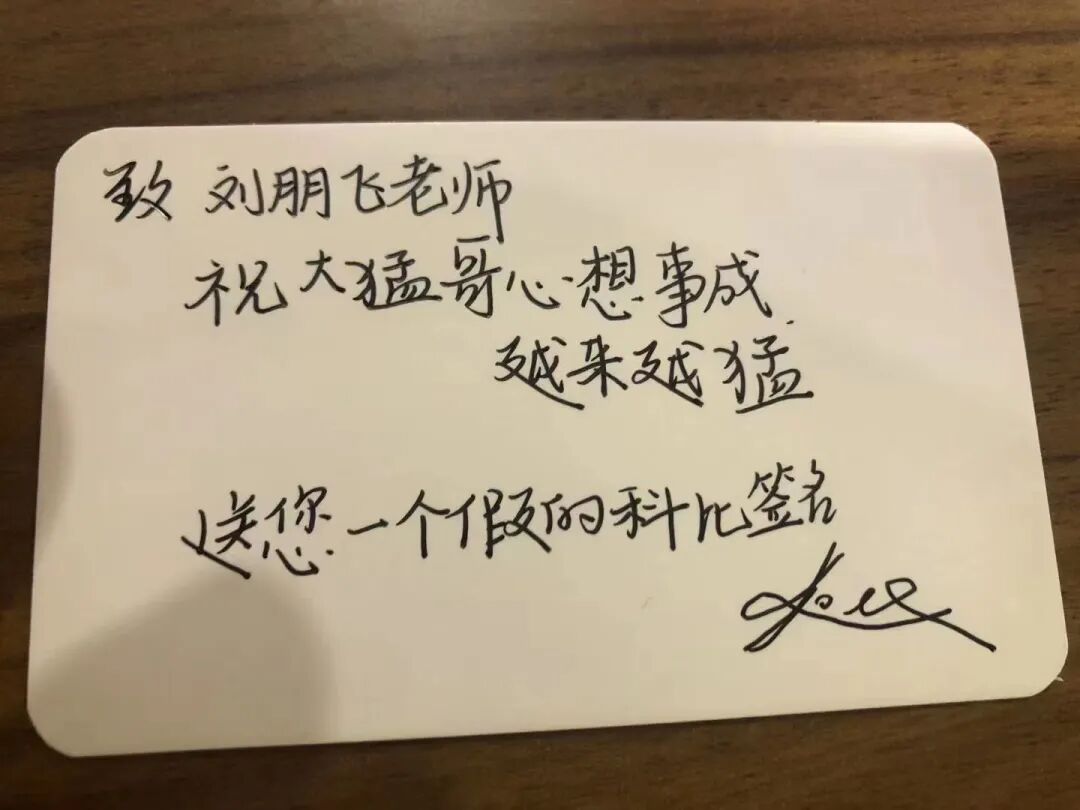 致 刘朋飞老师
祝大猛哥心想事成
越来越猛
送您一个假的科比签名